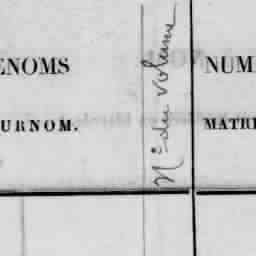 ENOMS
URNOM.
N° du volume
NUM
MATRI